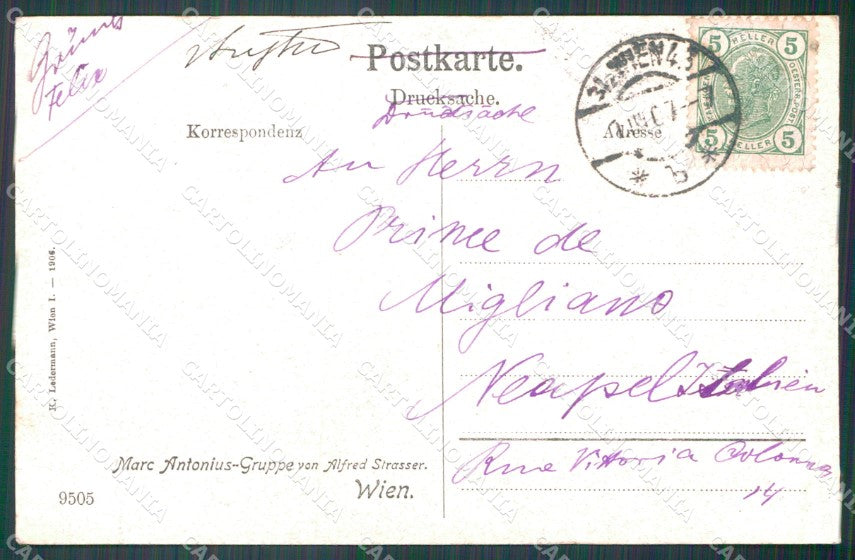 Felix
Postkarte.
Drucksache.
Drucksache
Korrespondenz
Adresse
WIEN 43
5 HELLER 5
5 HELLER 5
An Herrn
Prince de
Migliano
Neapel Italien
Rue Vittoria Colonna
14
K. Ledermann, Wien I. — 1906.
Marc Antonius-Gruppe von Alfred Strasser.
Wien.
9505
CARTOLINOMANIA